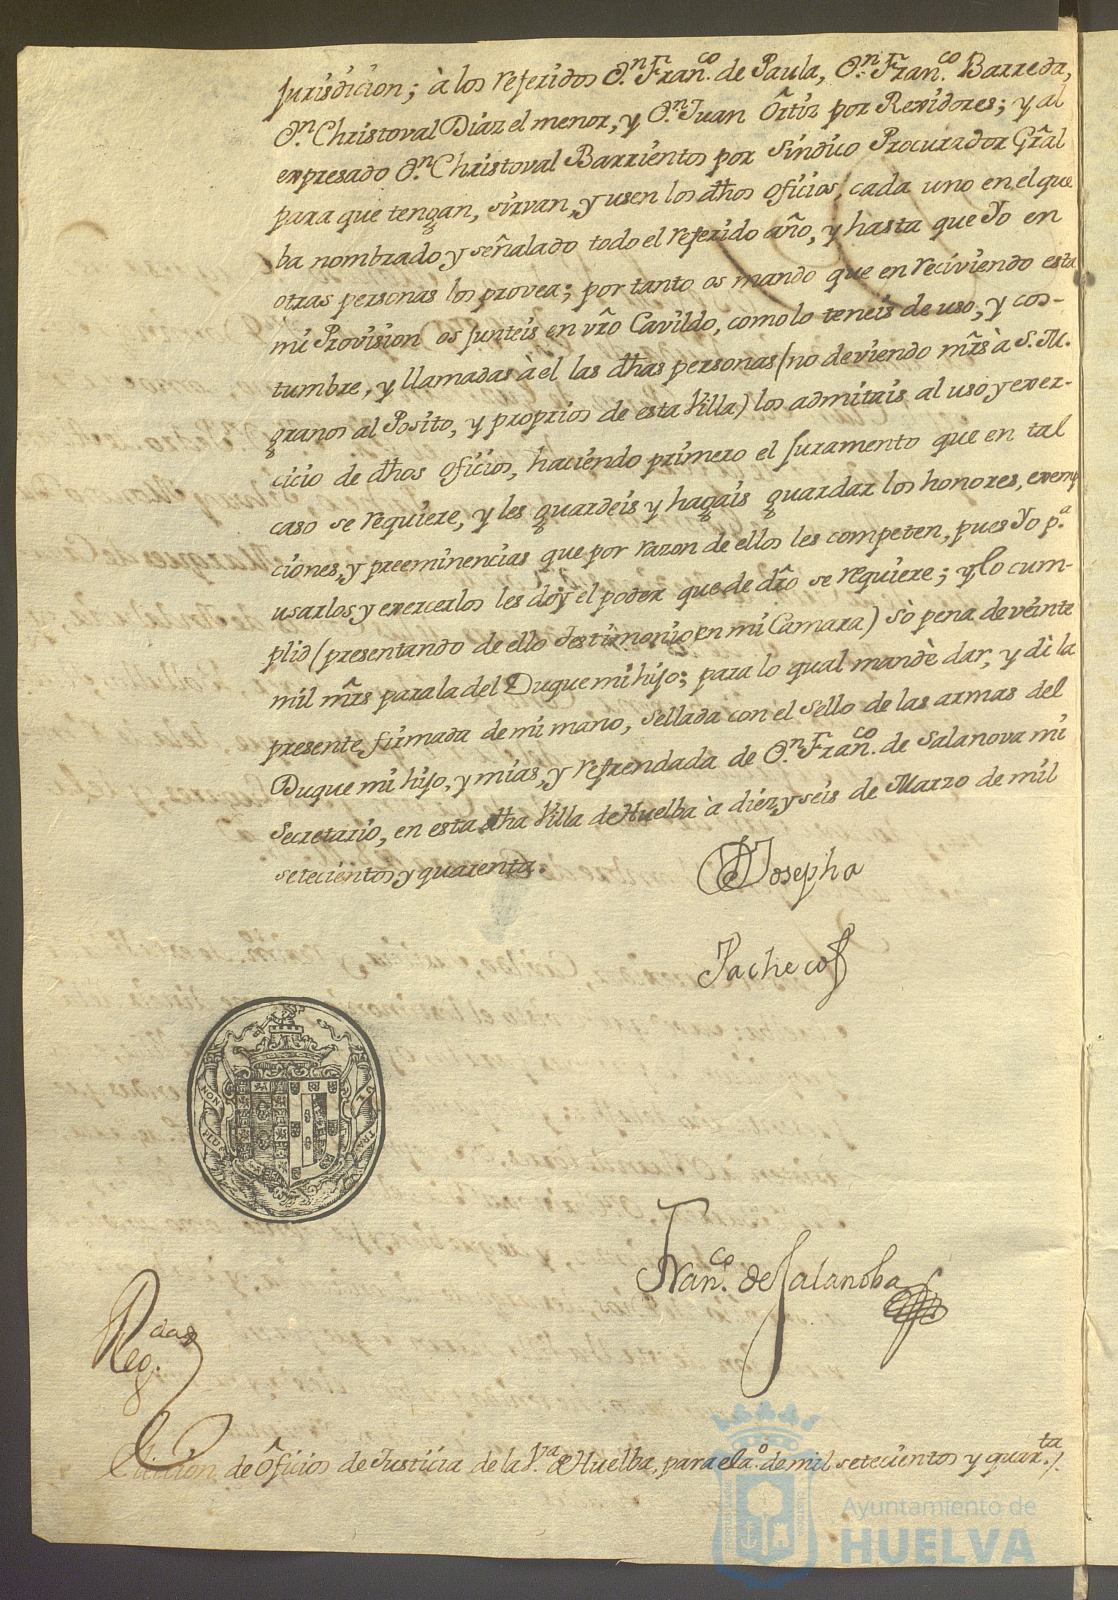 Jurisdicion; à los referidos Dⁿ. Franᶜᵒ. de Paula, Dⁿ. Franᶜᵒ. Barreda,
Dⁿ. Christoval Diaz el menor, y Dⁿ. Juan Ortiz por Rexidores; y al
expresado Dⁿ. Christoval Barrientos por Sindico Procurador Gr̃al
para que tengan, sirvan, y usen los dh̃os oficios, cada uno en el que
ba nombrado y señalado todo el referido año, y hasta que Yo en
otras personas los provea; por tanto os mando que en reciviendo esta
mi Provision os junteis en vr̃o Cavildo, como lo teneis de uso, y cos-
tumbre, y llamadas à el las dh̃as personas (no deviendo mr̃s à S. M.
granos al Posito, y proprios de esta Villa) los admitais al uso y exer-
cicio de dh̃os oficios, haciendo primero el juramento que en tal
caso se requiere, y les guardeis y hagais guardar los honores, exemp
ciones, y preeminencias que por razon de ellos les competen, pues Yo pᵃ.
usarlos y exercerlos les doy el poder que de dr̃o se requiere; y lo cum-
plid (presentando de ello testimonio en mi Camara) sò pena de veinte
mil mr̃s para la del Duque mi hijo; para lo qual mandè dar, y dì la
presente, firmada de mi mano, sellada con el sello de las armas del
Duque mi hijo, y mias, y refrendada de Dⁿ. Franᶜᵒ. de Salanova mi
Secretario, en esta dh̃a Villa de Huelba à diez y seis de Marzo de mil
setecientos y quarenta.
Josepha
Pacheco
NON PLUS ULTRA
Franᶜᵒ. de Salanoba
Regᵈᵃˢ
Elicion de Oficios de Justicia de la Vᵃ. de Huelba, para el aº. de mil setecientos y quarᵗᵃ.
Ayuntamiento de
HUELVA